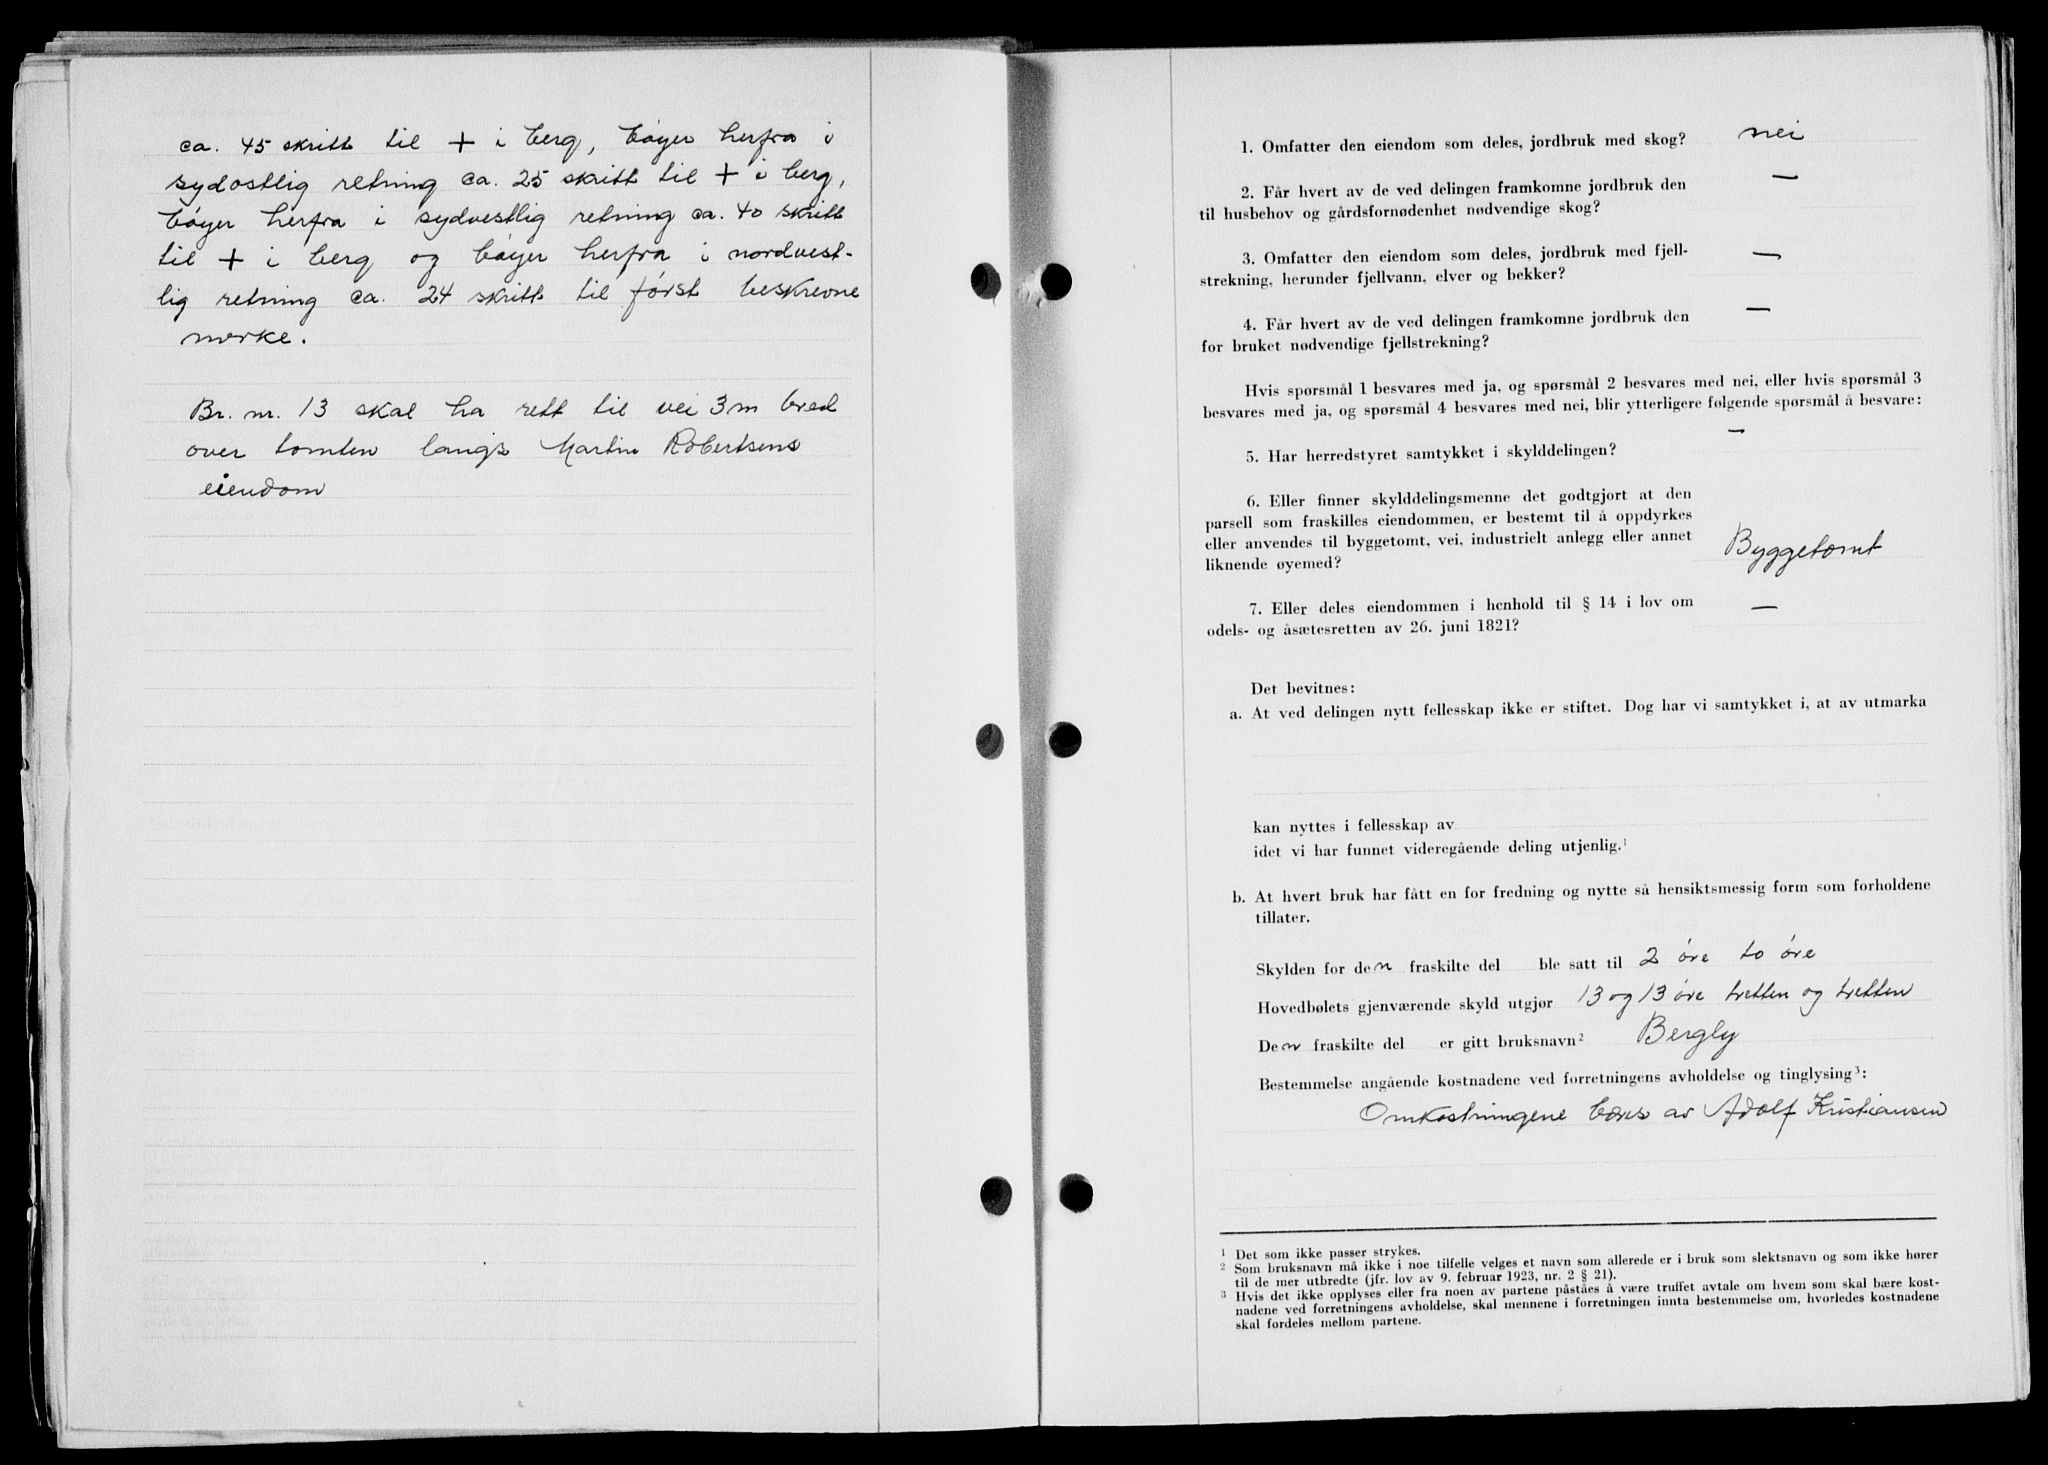 ca. 45 skritt til + i berg, bøyer herfra i
sydostlig retning ca. 25 skritt til + i berg,
bøyer herfra i sydvestlig retning ca. 40 skritt
til + i berg og bøyer herfra i nordvest-
lig retning ca. 24 skritt til først beskrevne
merke.
Br. nr. 13 skal ha rett til vei 3 m bred
over tomten langs Martin Robertsens
eiendom
1. Omfatter den eiendom som deles, jordbruk med skog? nei
2. Får hvert av de ved delingen framkomne jordbruk den —
til husbehov og gårdsfornødenhet nødvendige skog?
3. Omfatter den eiendom som deles, jordbruk med fjell- —
strekning, herunder fjellvann, elver og bekker?
4. Får hvert av de ved delingen framkomne jordbruk den —
for bruket nødvendige fjellstrekning?
Hvis spørsmål 1 besvares med ja, og spørsmål 2 besvares med nei, eller hvis spørsmål 3
besvares med ja, og spørsmål 4 besvares med nei, blir ytterligere følgende spørsmål å besvare:
5. Har herredstyret samtykket i skylddelingen? —
6. Eller finner skylddelingsmenne det godtgjort at den
parsell som fraskilles eiendommen, er bestemt til å oppdyrkes
eller anvendes til byggetomt, vei, industrielt anlegg eller annet
liknende øyemed? Byggetomt
7. Eller deles eiendommen i henhold til § 14 i lov om —
odels- og åsætesretten av 26. juni 1821?
Det bevitnes:
a. At ved delingen nytt fellesskap ikke er stiftet. Dog har vi samtykket i, at av utmarka
kan nyttes i fellesskap av
idet vi har funnet videregående deling utjenlig.¹
b. At hvert bruk har fått en for fredning og nytte så hensiktsmessig form som forholdene
tillater.
Skylden for den fraskilte del ble satt til 2 øre to øre
Hovedbølets gjenværende skyld utgjør 13 og 13 øre tretten og tretten
Den fraskilte del er gitt bruksnavn² Bergly
Bestemmelse angående kostnadene ved forretningens avholdelse og tinglysing³:
Omkostningene bæres av Adolf Kristiansen
¹ Det som ikke passer strykes.
² Som bruksnavn må ikke i noe tilfelle velges et navn som allerede er i bruk som slektsnavn og som ikke hører
til de mer utbredte (jfr. lov av 9. februar 1923, nr. 2 § 21).
³ Hvis det ikke opplyses eller fra noen av partene påståes å være truffet avtale om hvem som skal bære kost-
nadene ved forretningens avholdelse, skal mennene i forretningen innta bestemmelse om, hvorledes kostnadene
skal fordeles mellom partene.